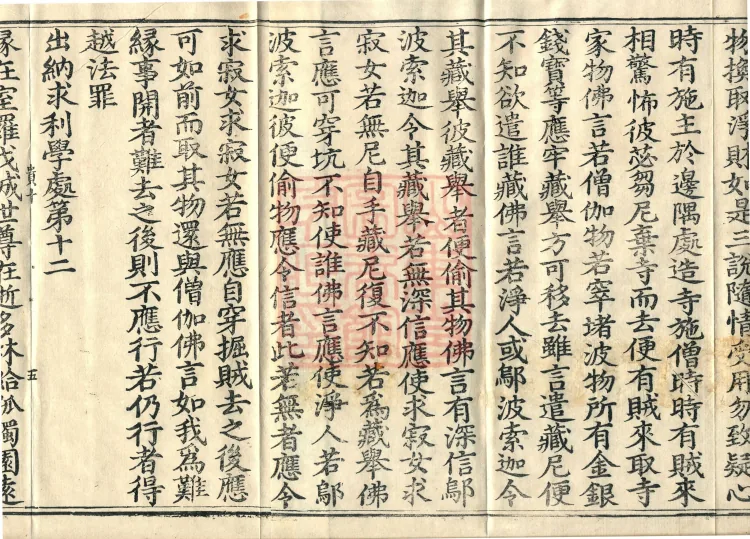 物換取淨財如是三說隨情受用勿致疑心
時有施主於邊隅處造寺施僧時時有賊來
相驚怖彼苾芻尼棄寺而去便有賊來取寺
家物佛言若僧伽物若窣堵波物所有金銀
錢寶等應牢藏舉方可移去雖言遣藏尼便
不知欲遣誰藏佛言若淨人或鄔波索迦令
其藏舉彼藏舉者便偷其物佛言有深信鄔
波索迦令其藏舉若無深信應使求寂女求
寂女若無尼自手藏尼復不知若為藏舉佛
言應可穿坑不知使誰佛言應使淨人若鄔
波索迦彼便偷物應令信者此若無者應令
求寂女求寂女若無應自穿掘賊去之後應
可如前而取其物還與僧伽佛言如我為難
緣事開者難去之後則不應行若仍行者得
越法罪
出納求利學處第十二
五
緣在室羅伐城世尊在逝多林給孤獨園遠